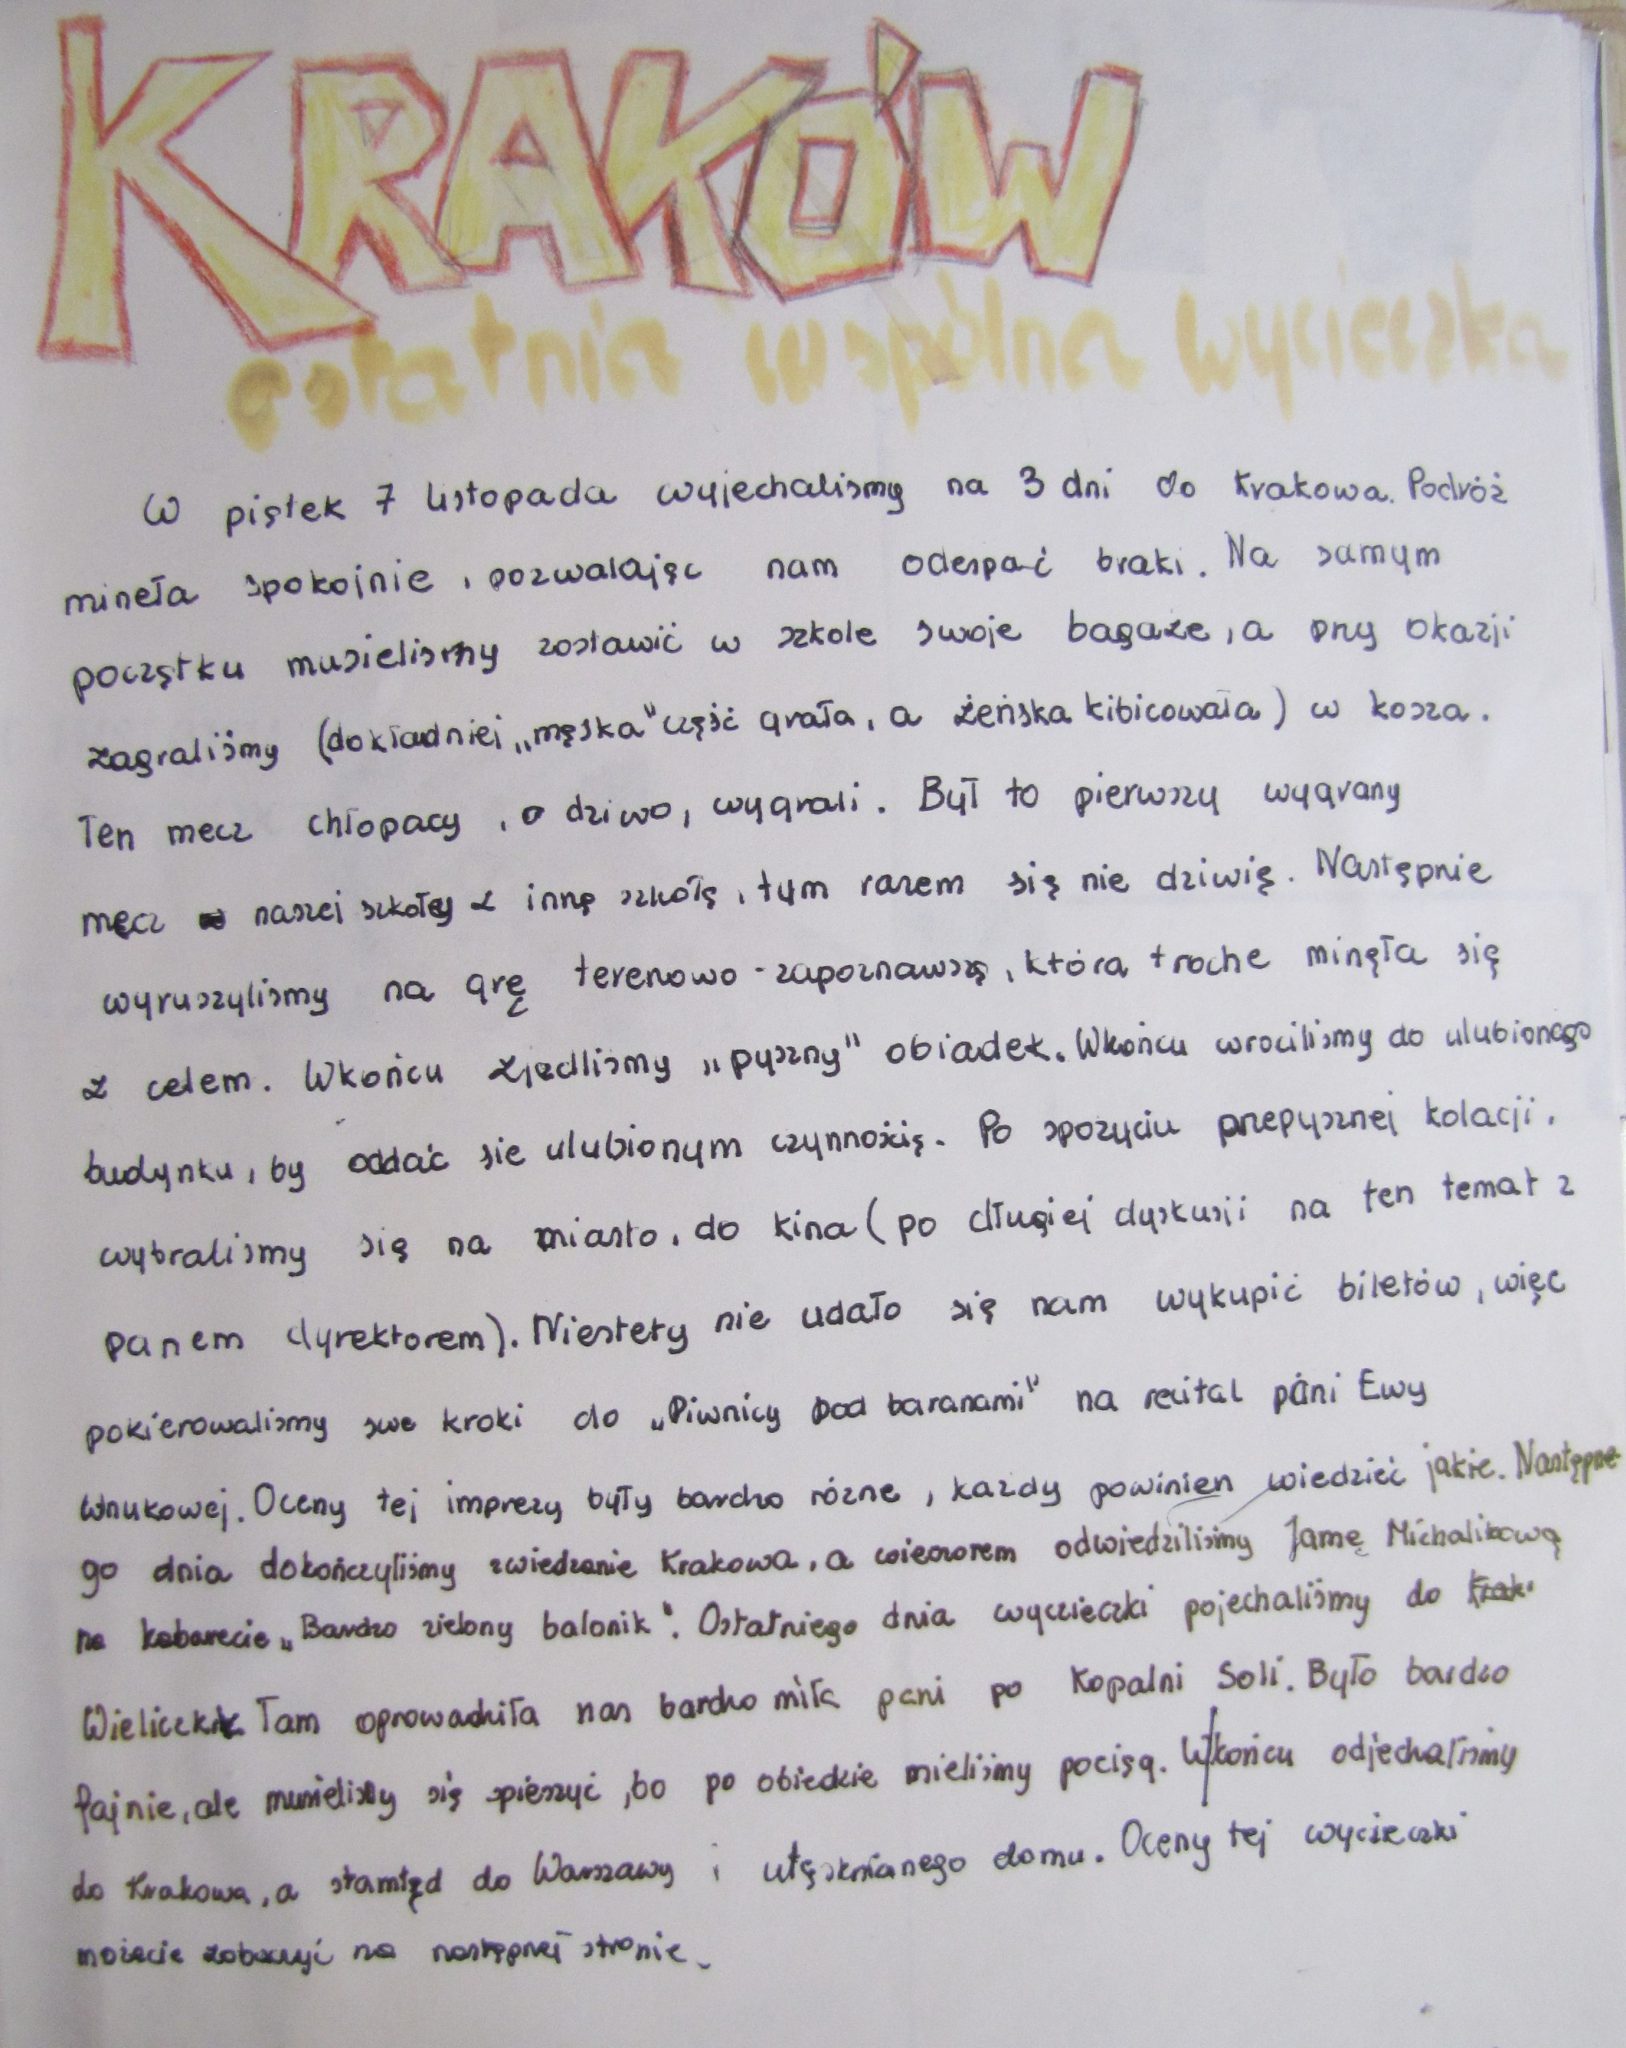 KRAKÓW
ostatnia wspólna wycieczka
W piątek 7 listopada wyjechalismy na 3 dni do Krakowa. Podróż
mineła spokojnie, pozwalając nam odespać braki. Na samym
początku musielismy zostawić w szkole swoje bagaże, a przy okazji
zagraliśmy (dokładniej „męska" część grała, a żeńska kibicowała) w kosza.
Ten mecz chłopacy, o dziwo, wygrali. Był to pierwszy wygrany
mecz naszej szkoły z inną szkołą, tym razem się nie dziwię. Następnie
wyruszylismy na grę terenowo-zapoznawszą, która troche minęła się
z celem. Wkońcu zjedlismy „pyszny" obiadek. Wkońcu wrocilismy do ulubionego
budynku, by oddać sie ulubionym czynnością. Po spożyciu przepysznej kolacji,
wybralismy się na miasto, do kina (po długiej dyskusji na ten temat z
panem dyrektorem). Niestety nie udało się nam wykupić biletów, więc
pokierowalismy swe kroki do „Piwnicy pod baranami" na recital pani Ewy
Wnukowej. Oceny tej imprezy były bardzo różne, każdy powinien wiedzieć jakie. Następne-
go dnia dokończyliśmy zwiedzanie Krakowa, a wieczorem odwiedziliśmy Jamę Michalikową
na kabarecie „Bardzo zielony balonik". Ostatniego dnia wycieczki pojechaliśmy do Krak
Wieliczki Tam oprowadziła nas bardzo miła pani po Kopalni Soli. Było bardzo
fajnie, ale musieliśmy się spieszyć, bo po obiedzie mieliśmy pociąg. W/końcu odjechaliśmy
do Krakowa, a stamtąd do Warszawy i utęsknianego domu. Oceny tej wycieczki
możecie zobaczyć na następnej stronie.